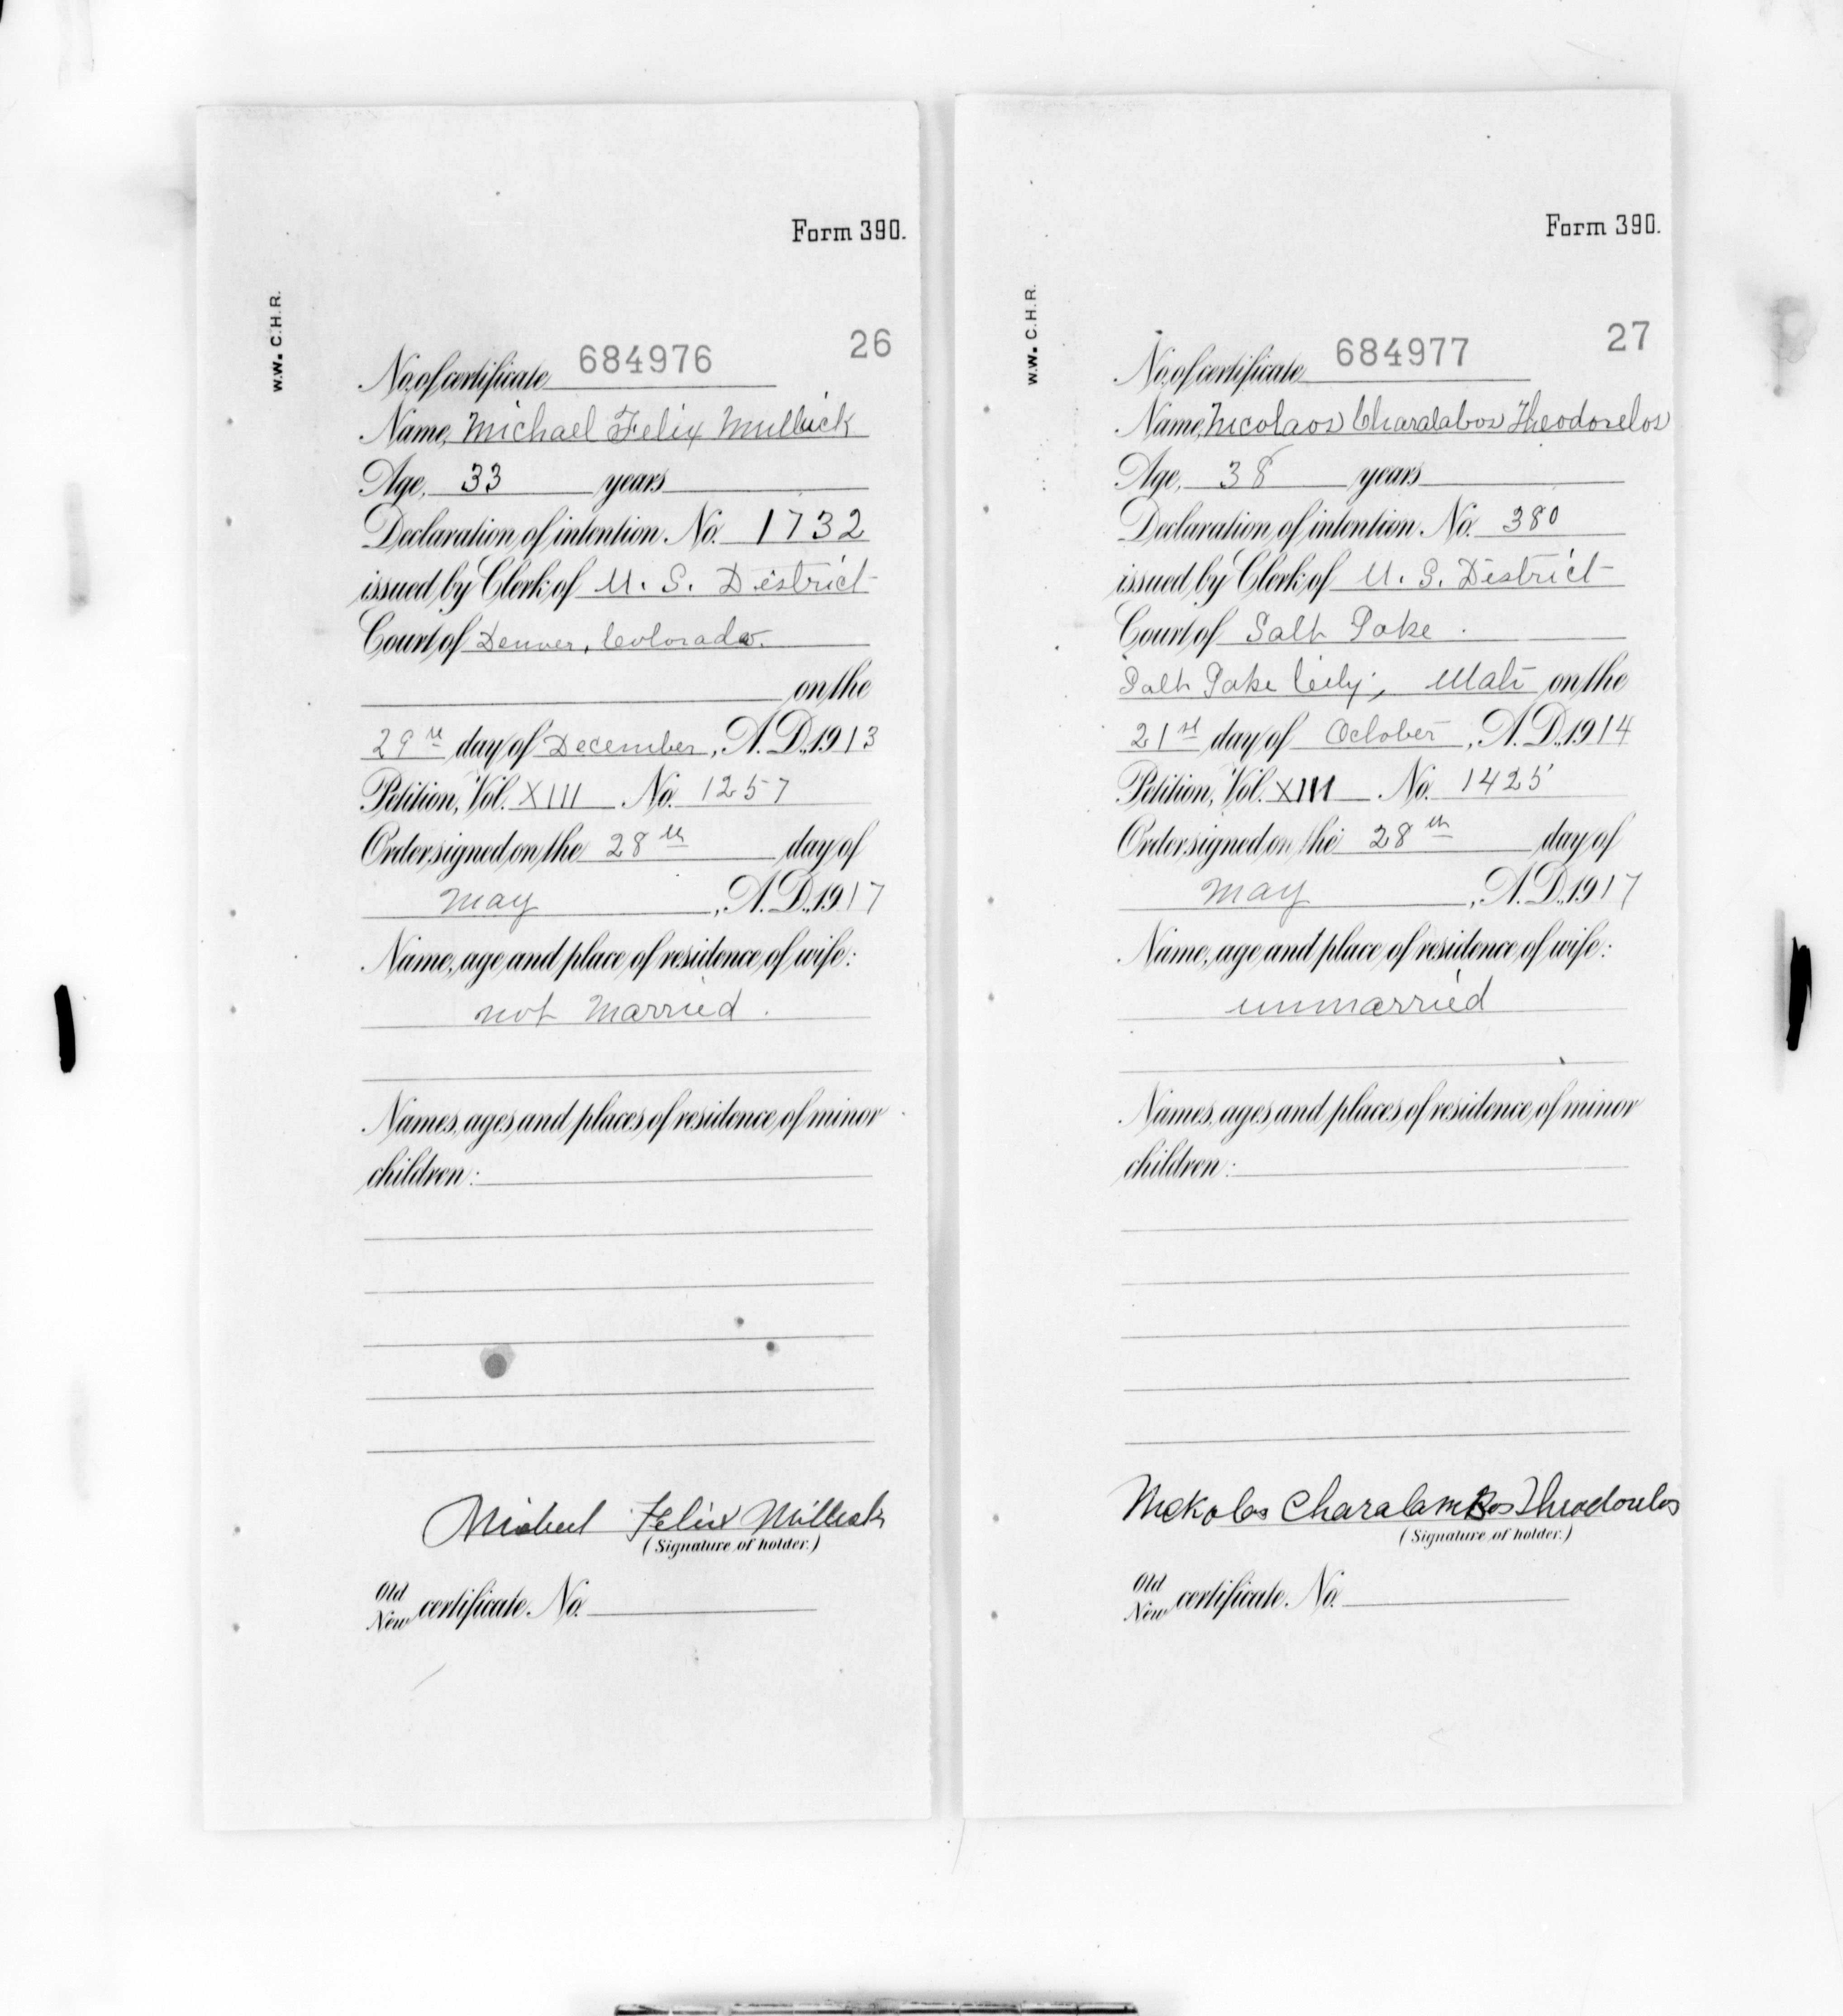 Form 390.
W.W. C.H.R.
26
No. of certificate 684976
Name, Michael Felix Mullick
Age, 33 years
Declaration of intention No. 1732
issued by Clerk of U. S. District
Court of Denver, Colorado.
on the
29th day of December, A. D., 1913
Petition, Vol. XIII No. 1257
Order signed on the 28th day of
May, A. D., 1917
Name, age and place of residence of wife:
not married.
Names, ages and places of residence of minor
children:
Felix
(Signature of holder.)
Old
New certificate No.
Form 390.
W.W. C.H.R.
27
No. of certificate 684977
Name, Nicolaos Charalabos
Age, 38 years
Declaration of intention No. 380
issued by Clerk of U. S. District
Court of Salt Lake.
Salt Lake City, Utah on the
21st day of October, A. D., 1914
Petition, Vol. No. 1425
Order signed on the 28th day of
May, A. D., 1917
Name, age and place of residence of wife:
unmarried
Names, ages and places of residence of minor
children:
CharalamBos
(Signature of holder.)
Old
New certificate No.